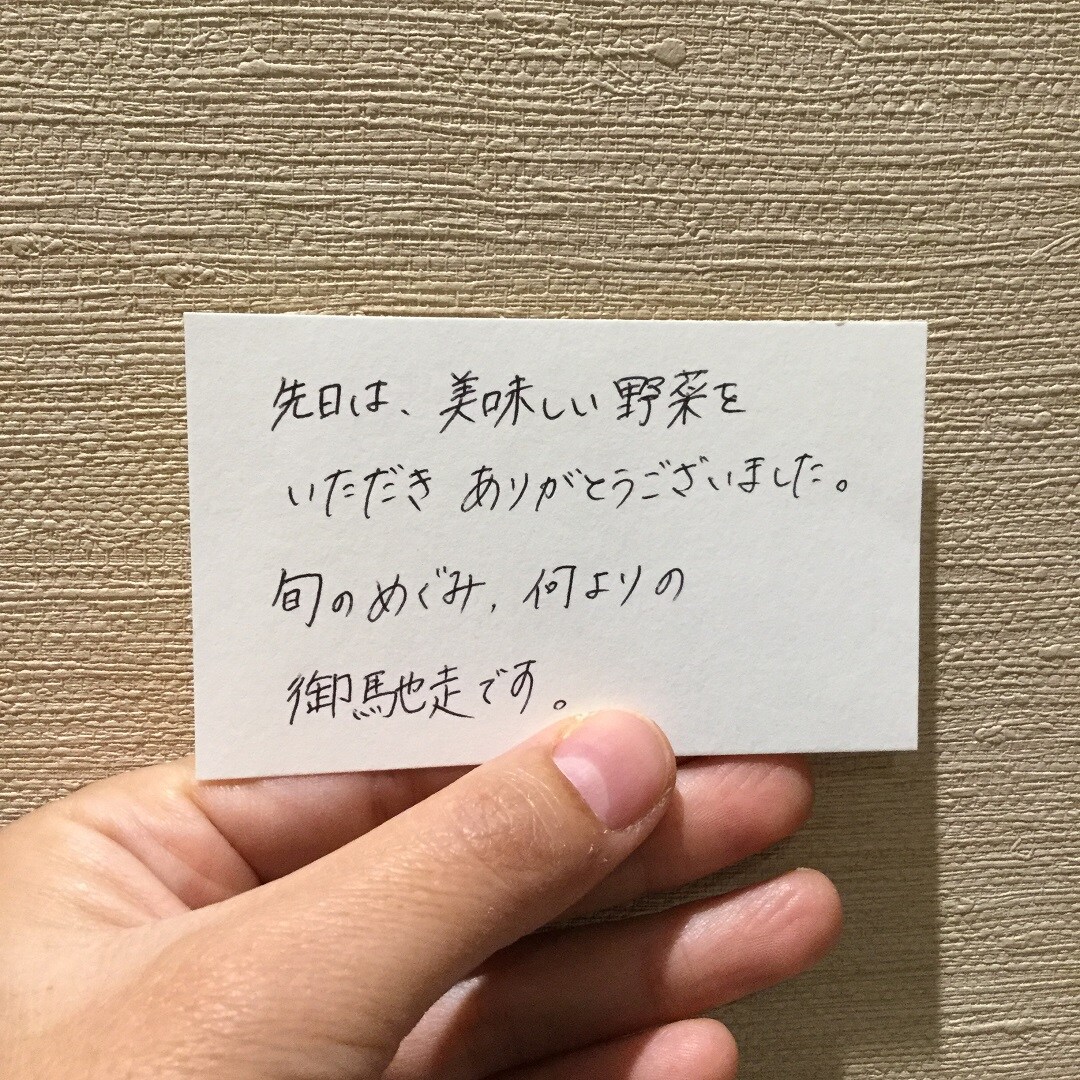 先日は、美味しい野菜を
いただき ありがとうございました。
旬のめぐみ、何よりの
御馳走です。